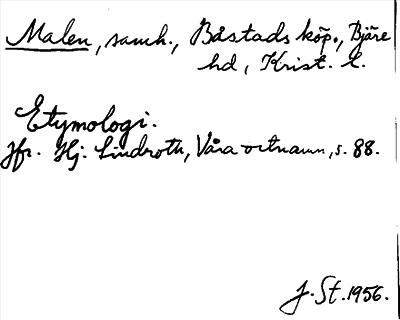 Malen, samh., Båstads köp., Bjäre
hd, Krist. l.
Etymologi.
Jfr. Hj. Lindroth, Våra ortnamn, s. 88.
J. St. 1956.